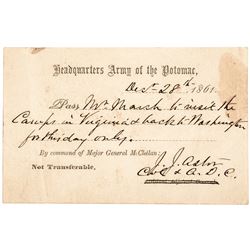 Headquarters Army of the Potomac,
Dec. 28th 1861
Pass Mr. March to visit the
Camps in Virginia & back to Washington
for this day only.
By command of Major General McClelan:
J. J. Astor
Col & A. D. C.
Not Transferable,